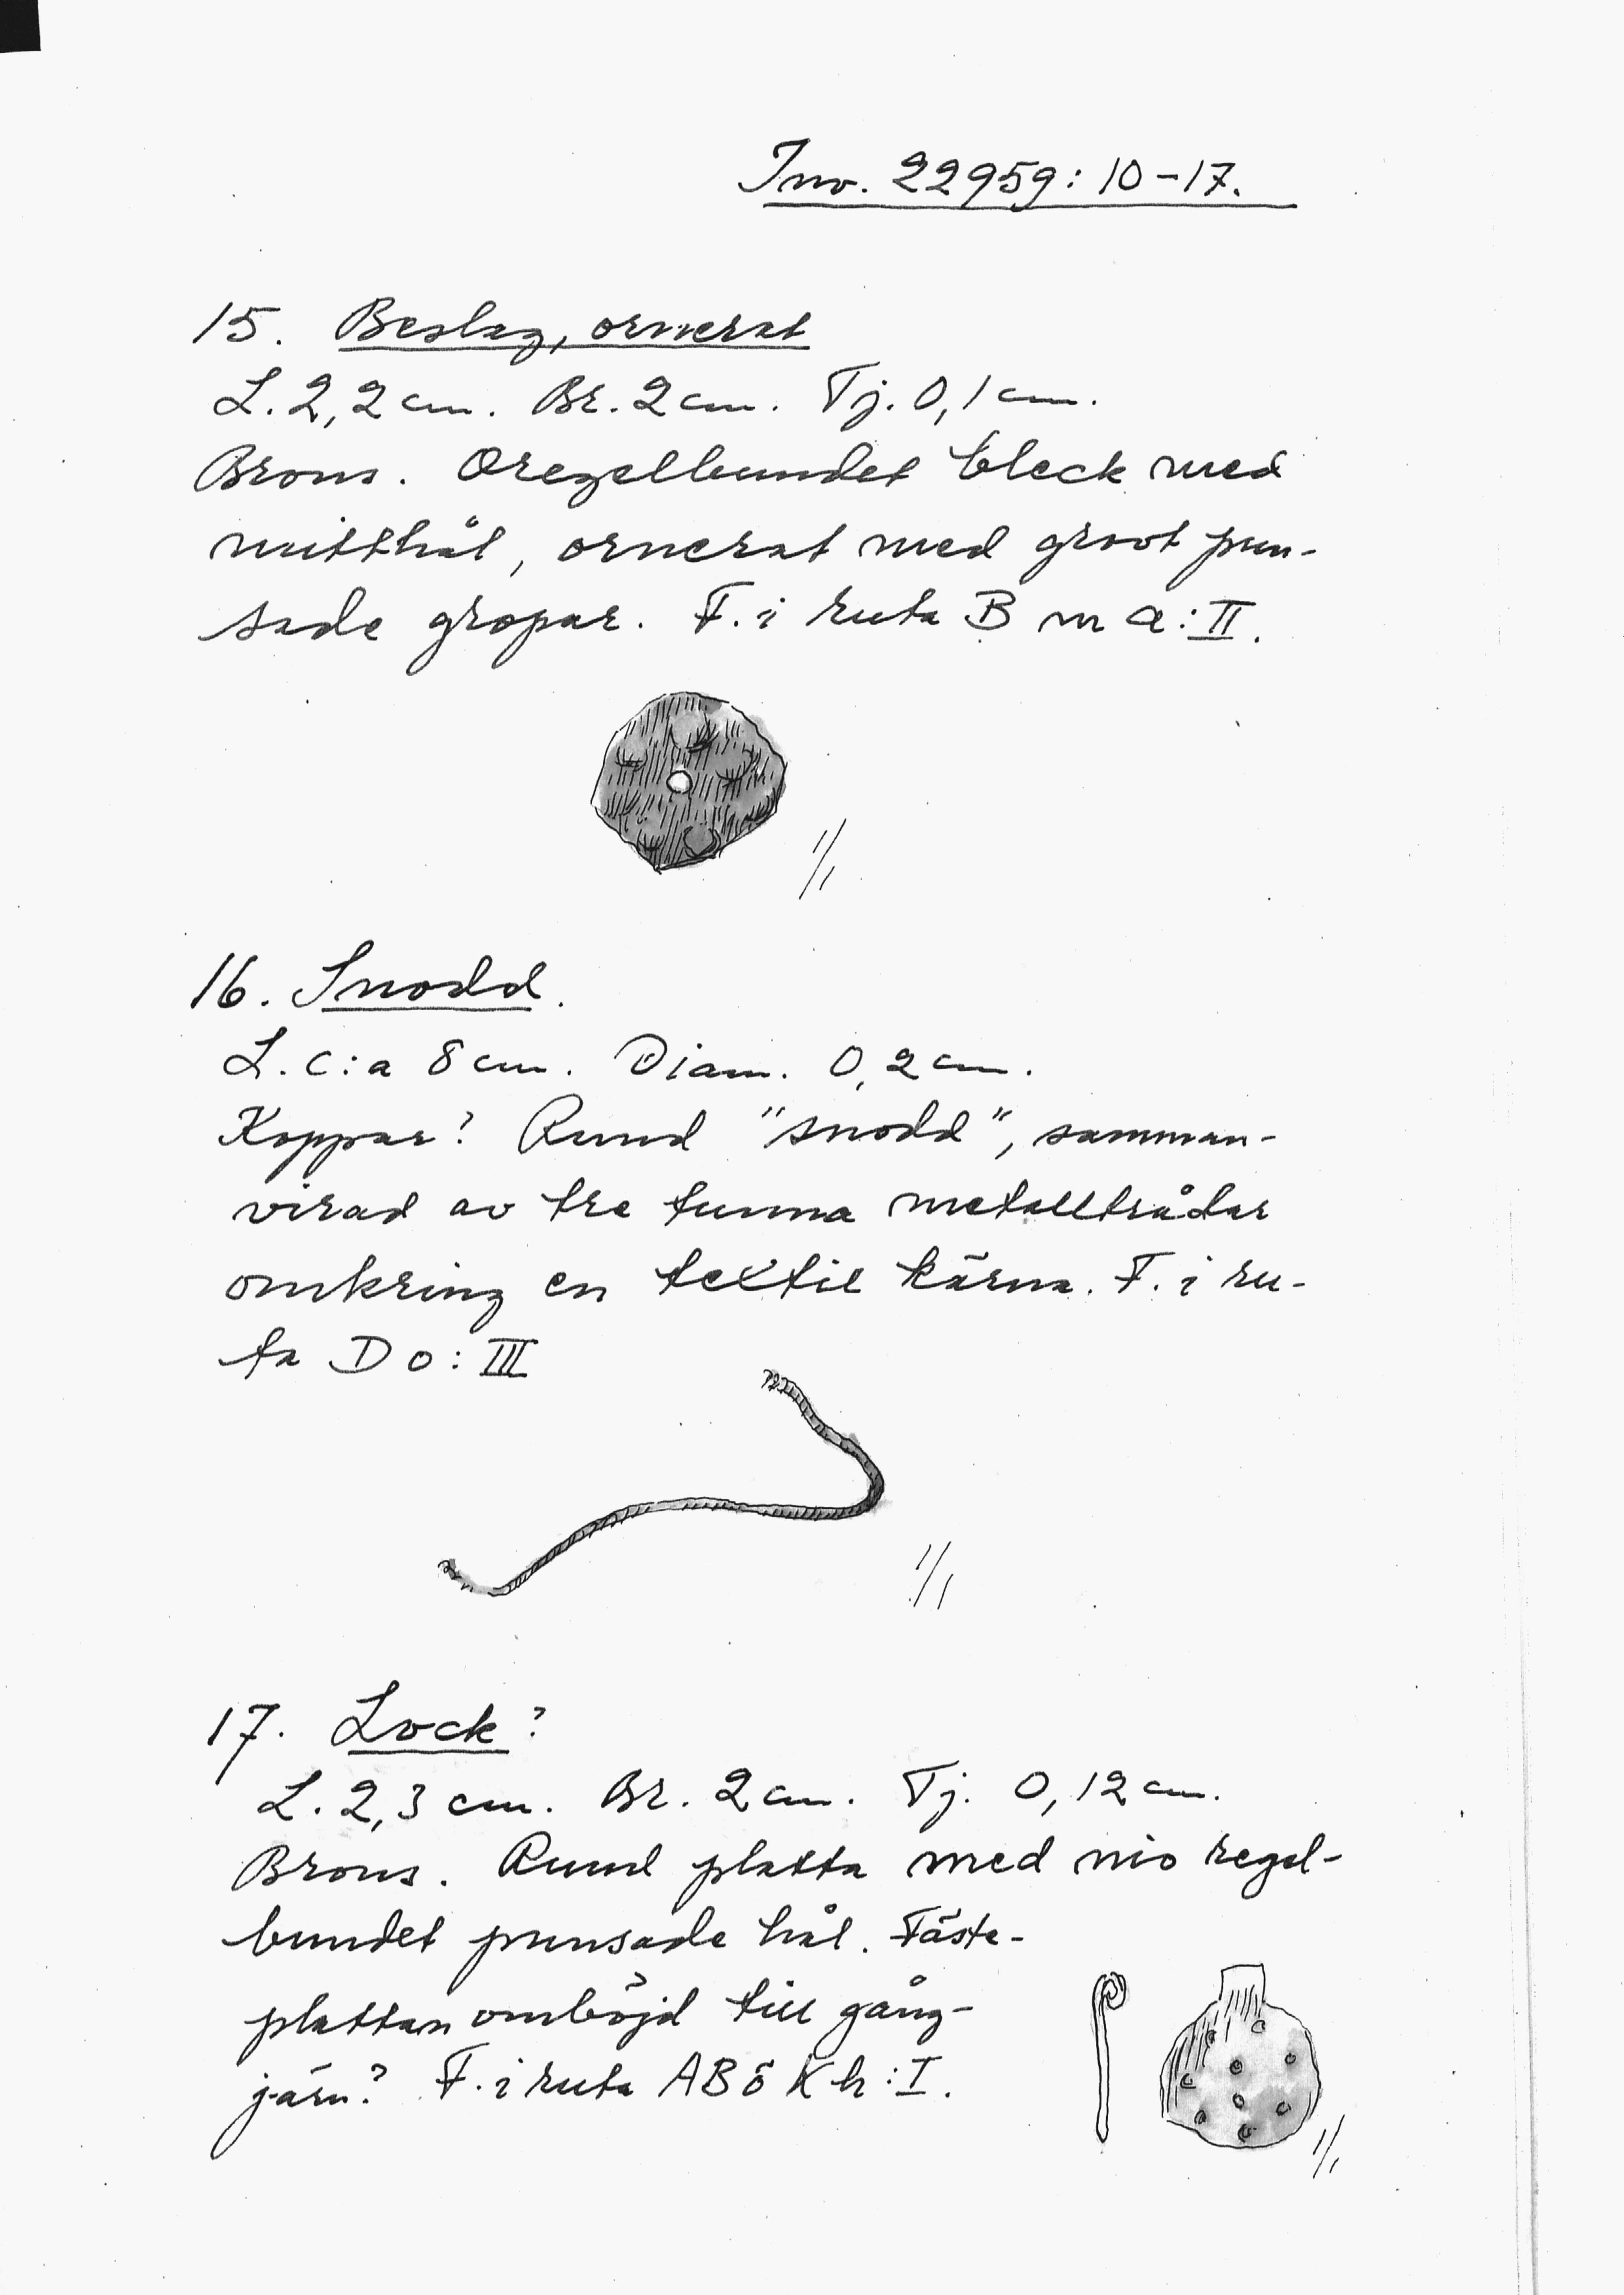 Inv. 22959: 10-17.
15. Beslag, ornerat
L. 2,2 cm. Br. 2 cm. Tj. 0,1 cm.
Brons. Oregelbundet bleck med
mitthål, ornerat med grovt pun-
sade gropar. F. i ruta B m a: II.
1/1
16. Snodd.
L. c:a 8 cm. Diam. 0,2 cm.
Koppar? Rund "snodd", samman-
virad av tre tunna metalltrådar
omkring en textil kärna. F. i ru-
ta D o: III
1/1
17. Lock?
L. 2,3 cm. Br. 2 cm. Tj. 0,12 cm.
Brons. Rund platta med nio regel-
bundet punsade hål. Fäste-
plattan omböjd till gång-
järn? F. i ruta ABö K h: I.
1/1